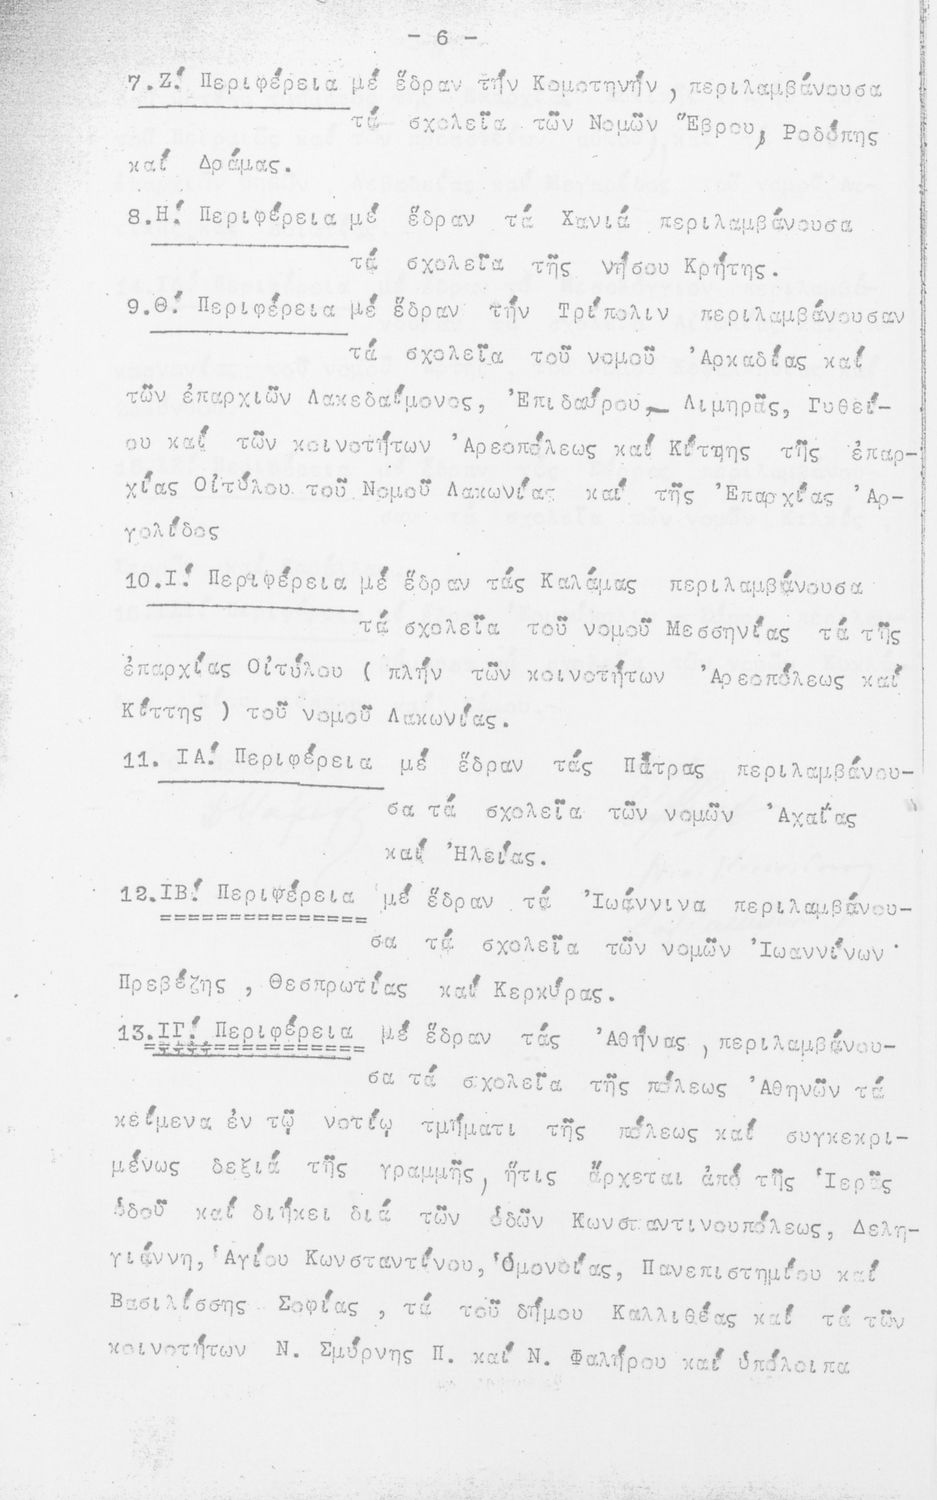 - 6 -
7.Ζ! Περιφέρεια μέ ἕδραν τήν Κομοτηνήν, περιλαμβάνουσα
τά σχολεῖα τῶν Νομῶν Ἕβρου, Ροδόπης
καί Δράμας.
8.Η! Περιφέρεια μέ ἕδραν τά Χανιά περιλαμβάνουσα
τά σχολεῖα τῆς νήσου Κρήτης.
9.Θ! Περιφέρεια μέ ἕδραν τήν Τρίπολιν περιλαμβάνουσαν
τά σχολεῖα τοῦ νομοῦ Ἀρκαδίας καί
τῶν ἐπαρχιῶν Λακεδαίμονος, Ἐπιδαύρου - Λιμηρᾶς, Γυθεί-
ου καί τῶν κοινοτήτων Ἀρεοπόλεως καί Κίττης τῆς ἐπαρ-
χίας Οἰτύλου τοῦ Νομοῦ Λακωνίας καί τῆς Ἐπαρχίας Ἀρ-
γολίδος
10.Ι! Περιφέρεια μέ ἕδραν τάς Καλάμας περιλαμβάνουσα
τά σχολεῖα τοῦ νομοῦ Μεσσηνίας τά τῆς
ἐπαρχίας Οἰτύλου ( πλήν τῶν κοινοτήτων Ἀρεοπόλεως καί
Κίττης ) τοῦ νομοῦ Λακωνίας.
11. ΙΑ! Περιφέρεια μέ ἕδραν τάς Πάτρας περιλαμβάνου-
σα τά σχολεῖα τῶν νομῶν Ἀχαΐας
καί Ἠλείας.
12.ΙΒ! Περιφέρεια μέ ἕδραν τά Ἰωάννινα περιλαμβάνου-
σα τά σχολεῖα τῶν νομῶν Ἰωαννίνων
Πρεβέζης , Θεσπρωτίας καί Κερκύρας.
13.ΙΓ! Περιφέρεια μέ ἕδραν τάς Ἀθήνας , περιλαμβάνου-
σα τά σχολεῖα τῆς πόλεως Ἀθηνῶν τά
κείμενα ἐν τῷ νοτίῳ τμήματι τῆς πόλεως καί συγκεκρι-
μένως δεξιά τῆς γραμμῆς, ἥτις ἄρχεται ἀπό τῆς Ἱερᾶς
ὁδοῦ καί διήκει διά τῶν ὁδῶν Κωνσταντινουπόλεως, Δελη-
γιάννη, Ἁγίου Κωνσταντίνου, Ὁμονοίας, Πανεπιστημίου καί
Βασιλίσσης Σοφίας , τά τοῦ δήμου Καλλιθέας καί τά τῶν
κοινοτήτων Ν. Σμύρνης Π. καί Ν. Φαλήρου καί ὑπόλοιπα